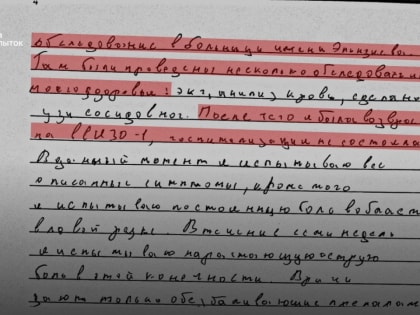 ПЫТОК
обследование в больницу имени
Там были проведены несколько обследований
моего здоровья: экг, анализ крови, сделали
узи сосудов ног. После чего я была возвращена
на госпитализации не состоялось
В данный момент я испытываю все
описанные симптомы, кроме того
я испытываю постоянную боль в области
в левой руке. В течение семи недель
я испытываю нарастающую острую
боль в этой конечности. Врачи
дают только обезболивающие